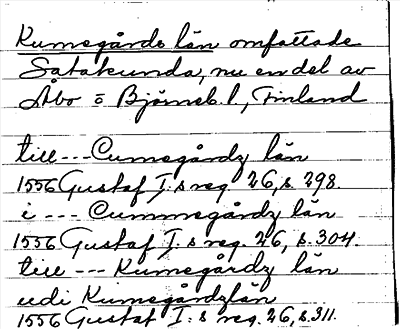 Kumogårds län omfattade
Satakunda, nu en del av
Åbo o Björneb. l, Finland
till --- Cumogårdz län
1556 Gustaf I:s reg. 26, s. 298.
i --- Cummogårdz län
1556 Gustaf I:s reg. 26, s. 304.
till --- Kumogårdz län
udi Kumogårdzlän
1556 Gustaf I:s reg. 26, s. 311.